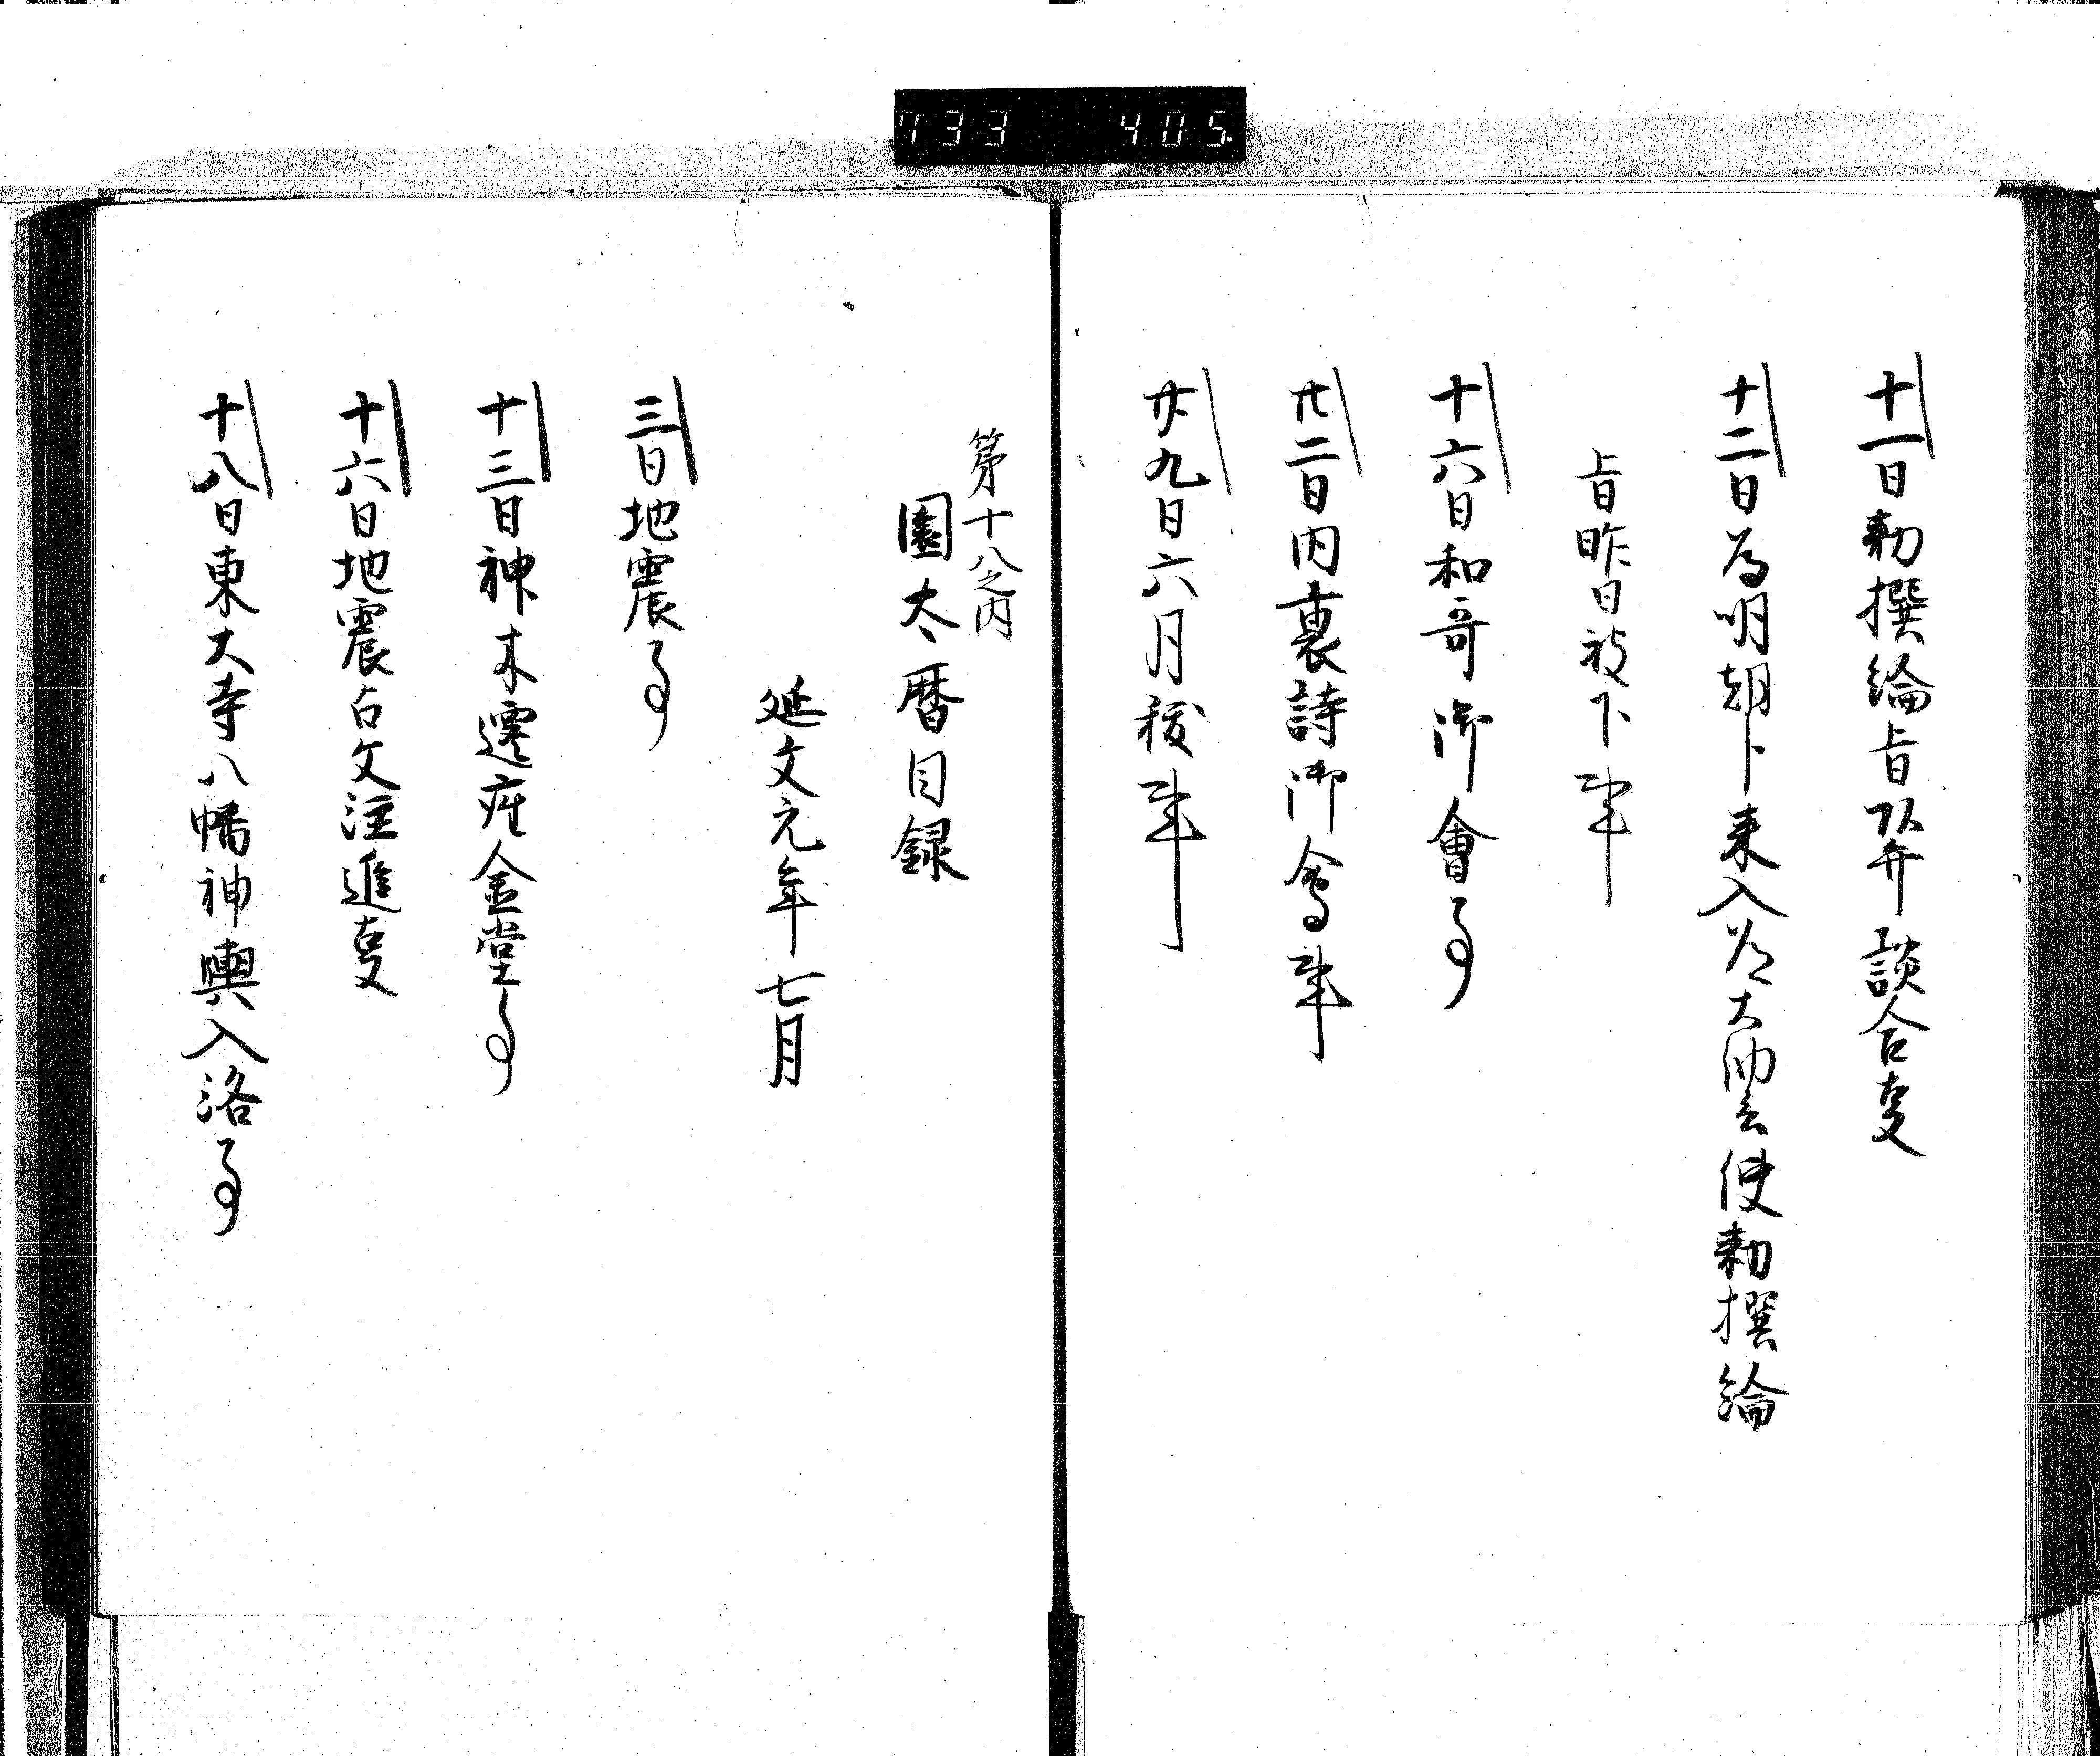 733 405
十一日勅撰綸旨 談合叓
十二日為明朝臣来入道大納言使勅撰綸
旨昨日被下事
十六日和哥御會事
廿二日内裏詩御會事
廿九日六月祓事
第十八之内
園太暦目録
延文元年七月
三日地震事
十三日神木遷座金堂事
十六日地震占文注進叓
十八日東大寺八幡神輿入洛事